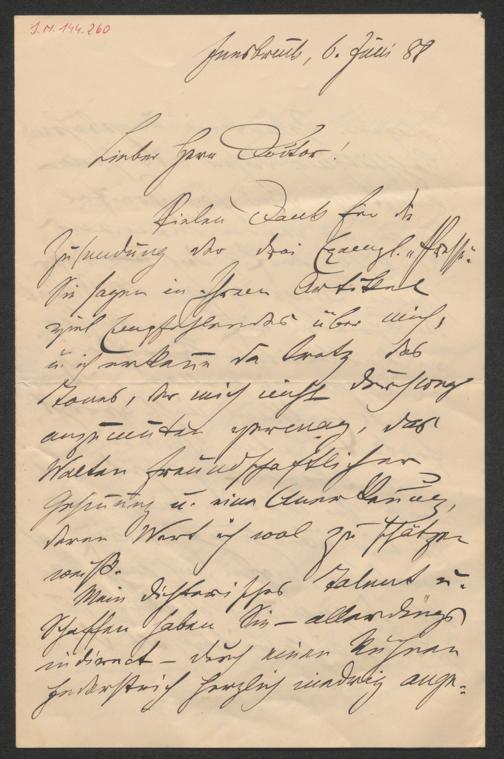 I.N. 144.260
Innsbruck, 6. Juni 88
Lieber Herr Doktor!
Vielen Dank für die
Zusendung der drei Exempl. „Presse“.
Sie sagen in Ihrem Artikel
viel Empfehlendes über mich,
u. ich erkenne da trotz des
Tones, der mich nicht durchwegs
anzumuten vermag, das
Walten freundschaftlicher
Gesinnung u. eine Anerkennung,
deren Wert ich wol zu schätzen
weiß.
Mein dichterisches Talent u.
Schaffen haben Sie – allerdings
indirect – durch einen kühnen
Federstrich herzlich niedrig ange=